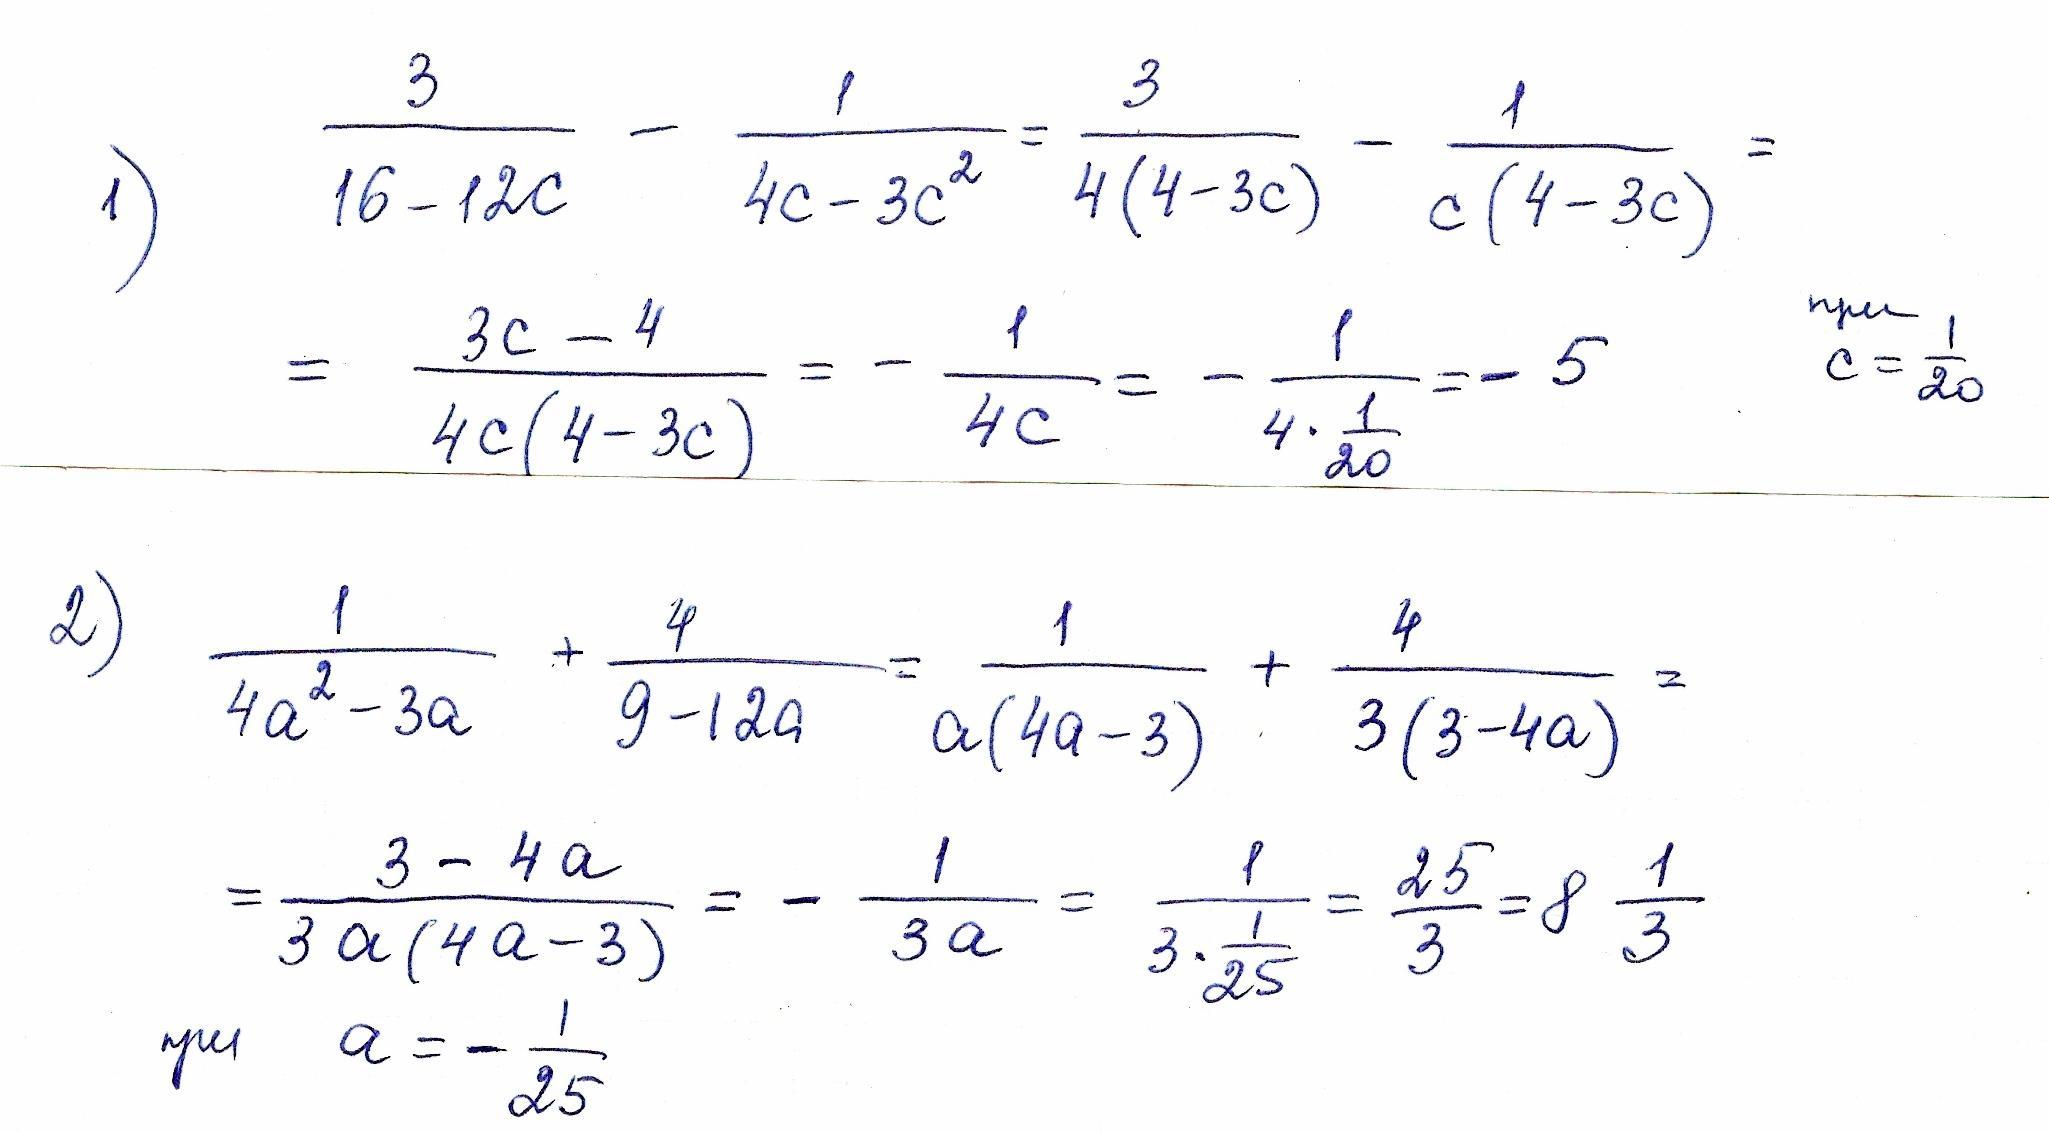 1) 3/(16-12c) - 1/(4c-3c²) = 3/(4(4-3c)) - 1/(c(4-3c)) =
= (3c-4)/(4c(4-3c)) = - 1/(4c) = - 1/(4·1/20) = - 5 при c = 1/20
2) 1/(4a²-3a) + 4/(9-12a) = 1/(a(4a-3)) + 4/(3(3-4a)) =
= (3-4a)/(3a(4a-3)) = - 1/(3a) = 1/(3·1/25) = 25/3 = 8 1/3
при a = - 1/25